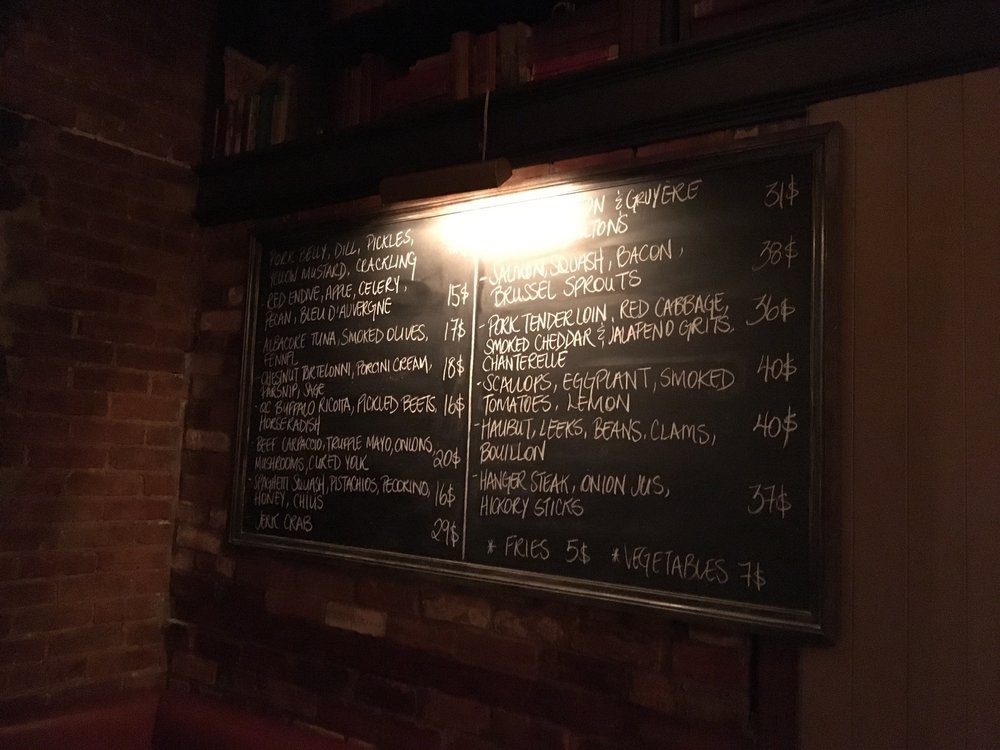 PORK BELLY, DILL, PICKLES,
YELLOW MUSTARD, CRACKLING
- RED ENDIVE, APPLE, CELERY, 15$
PECAN, BLEU D'AUVERGNE
ALBACORE TUNA, SMOKED OLIVES, 17$
FENNEL
CHESTNUT TORTELONNI, PORCINI CREAM, 18$
PARSNIP, SAGE
- QC BUFFALO RICOTTA, PICKLED BEETS, 16$
HORSERADISH
BEEF CARPACCIO, TRUFFLE MAYO, ONIONS,
MUSHROOMS, CURED YOLK 20$
- SPAGHETTI SQUASH, PISTACHIOS, PECORINO, 16$
HONEY, CHIVES
JERK CRAB 29$
& GRUYERE 31$
- SALMON, SQUASH, BACON, 38$
BRUSSEL SPROUTS
- PORK TENDERLOIN, RED CABBAGE, 36$
SMOKED CHEDDAR & JALAPENO GRITS,
CHANTERELLE
- SCALLOPS, EGGPLANT, SMOKED 40$
TOMATOES, LEMON
- HALIBUT, LEEKS, BEANS, CLAMS, 40$
BOUILLON
- HANGER STEAK, ONION JUS, 37$
HICKORY STICKS
* FRIES 5$ * VEGETABLES 7$